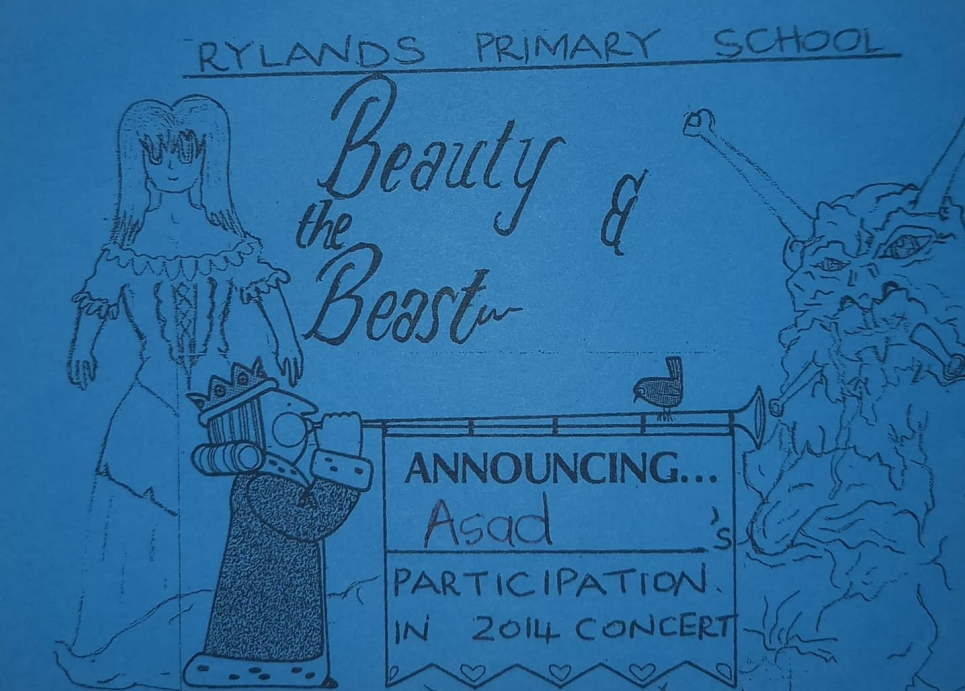 RYLANDS PRIMARY SCHOOL
Beauty &
the
Beast
ANNOUNCING...
Asad 's
PARTICIPATION.
IN 2014 CONCERT